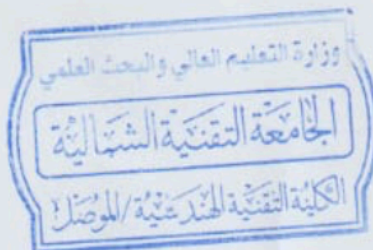 وزارة التعليم العالي والبحث العلمي
الجامعة التقنية الشمالية
الكلية التقنية الهندسية/الموصل